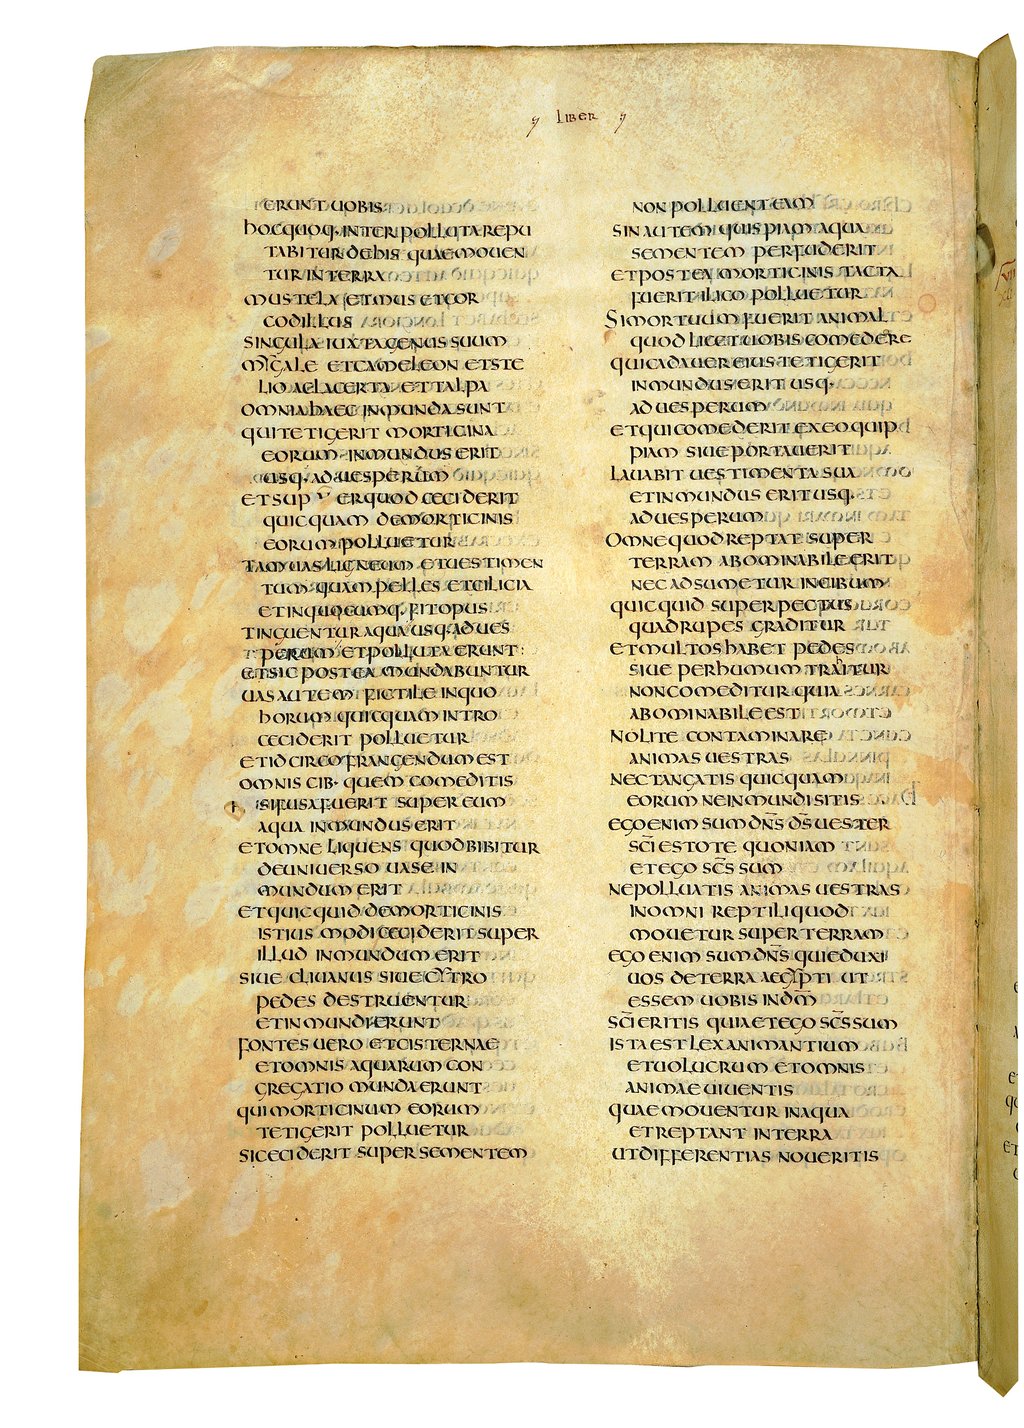 LIBER
ERUNT UOBIS
hOC QUOQ· INTER POLLUTA REPU
TABITUR DE hIS QUAE MOUEN
TUR IN TERRA
MUSTELA ET MUS ET COR
CODILLUS
SINGULA IUXTA GENUS SUUM
MYGALE ET CAMELEON ET STE
LIO AC LACERTA ET TALPA
OMNIA hAEC INMUNDA SUNT
QUI TETIGERIT MORTICINA
EORUM INMUNDUS ERIT
USQ· AD UESPERUM
ET SUPER QUOD CECIDERIT
QUICQUAM DE MORTICINIS
EORUM POLLUETUR
TAM UAS LIGNEUM ET UESTIMEN
TUM QUAM PELLES ET CILICIA
ET IN QUOCUMQ· FIT OPUS
TINGUENTUR AQUA USQ· AD UES
PERUM ET POLLUTA ERUNT
ET SIC POSTEA MUNDABUNTUR
UAS AUTEM FICTILE IN QUO
hORUM QUICQUAM INTRO
CECIDERIT POLLUETUR
ET IDCIRCO FRANGENDUM EST
OMNIS CIB· QUEM COMEDITIS
SI FUSA FUERIT SUPER EUM
AQUA INMUNDUS ERIT
ET OMNE LIQUENS QUOD BIBITUR
DE UNIUERSO UASE IN
MUNDUM ERIT
ET QUICQUID DE MORTICINIS
ISTIUS MODI CECIDERIT SUPER
ILLUD INMUNDUM ERIT
SIUE CLIUANUS SIUE CYTRO
PEDES DESTRUENTUR
ET INMUNDI ERUNT
FONTES UERO ET CISTERNAE
ET OMNIS AQUARUM CON
GREGATIO MUNDA ERUNT
QUI MORTICINUM EORUM
TETIGERIT POLLUETUR
SI CECIDERIT SUPER SEMENTEM
NON POLLUENT EAM
SIN AUTEM QUISPIAM AQUA
SEMENTEM PERFUDERIT
ET POSTEA MORTICINIS TACTA
FUERIT ILICO POLLUETUR
SI MORTUUM FUERIT ANIMAL
QUOD LICET UOBIS COMEDERE
QUI CADAUER EIUS TETIGERIT
INMUNDUS ERIT USQ·
AD UESPERUM
ET QUI COMEDERIT EX EO QUIP
PIAM SIUE PORTAUERIT
LAUABIT UESTIMENTA SUA
ET INMUNDUS ERIT USQ·
AD UESPERUM
OMNE QUOD REPTAT SUPER
TERRAM ABOMINABILE ERIT
NEC ADSUMETUR IN CIBUM
QUICQUID SUPER PECTUS
QUADRUPES GRADITUR
ET MULTOS HABET PEDES
SIUE PER HUMUM TRAhITUR
NON COMEDITUR QUIA
ABOMINABILE EST
NOLITE CONTAMINARE
ANIMAS UESTRAS
NEC TANGATIS QUICQUAM
EORUM NE INMUNDI SITIS
EGO ENIM SUM DN̄S D̄S UESTER
SC̄I ESTOTE QUONIAM
ET EGO SC̄S SUM
NE POLLUATIS ANIMAS UESTRAS
IN OMNI REPTILI QUOD
MOUETUR SUPER TERRAM
EGO ENIM SUM DN̄S QUI EDUXI
UOS DE TERRA AEGYPTI UT
ESSEM UOBIS IN DM̄
SC̄I ERITIS QUIA ET EGO SC̄S SUM
ISTA EST LEX ANIMANTIUM
ET UOLUCRUM ET OMNIS
ANIMAE UIUENTIS
QUAE MOUENTUR IN AQUA
ET REPTANT IN TERRA
UT DIFFERENTIAS NOUERITIS